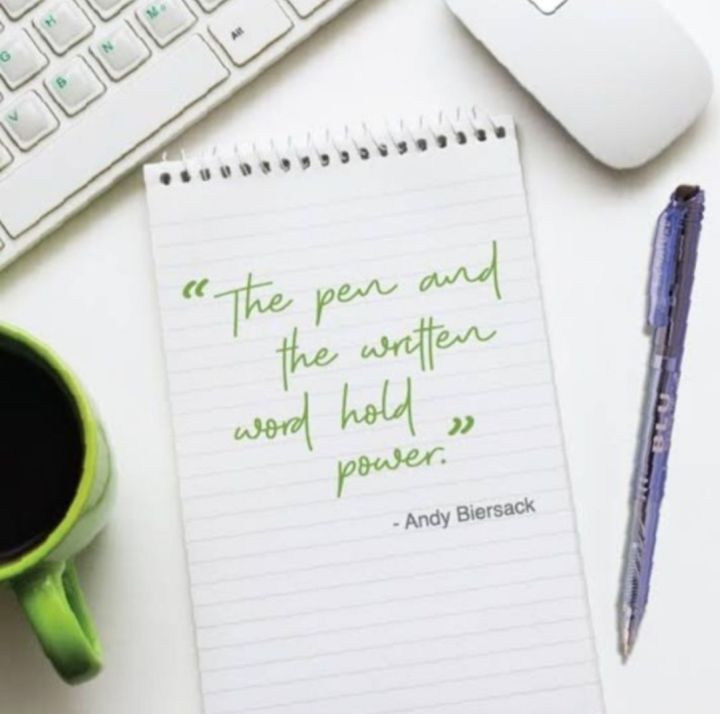 G
H
M
B
N
Alt
V
“The pen and
the written
word hold
power.”
- Andy Biersack
BLU